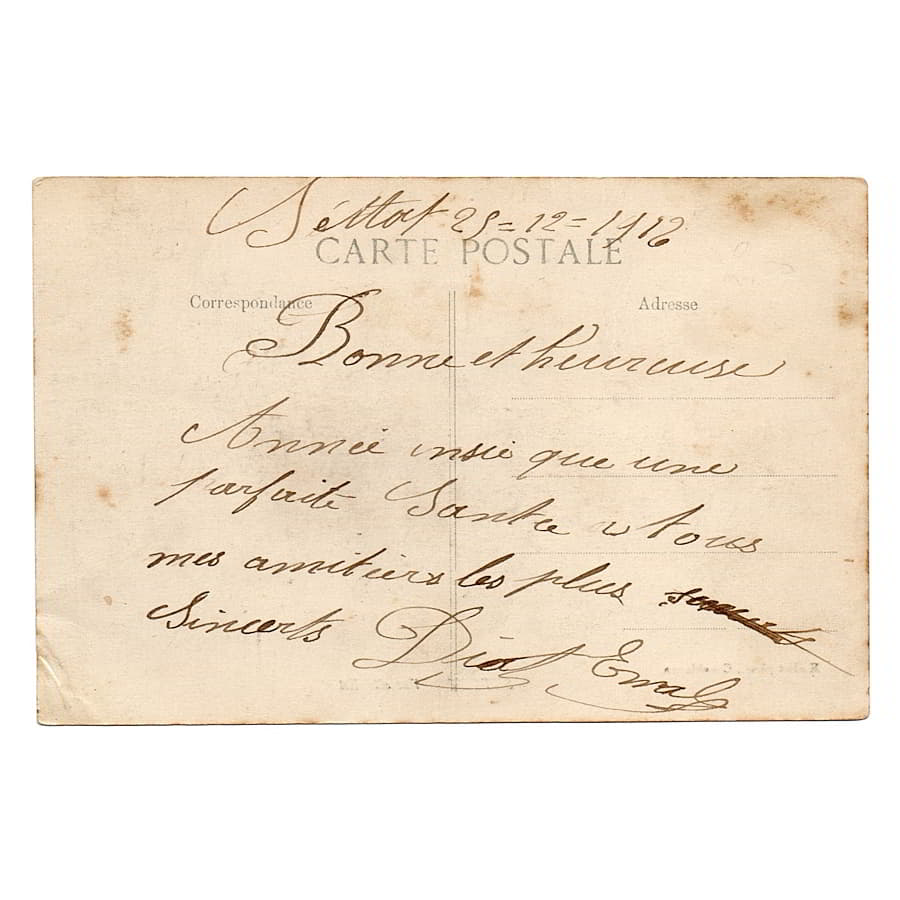 Settat 25=12=1912
CARTE POSTALE
Correspondance
Adresse
Bonne et heureuse
Année insie que une
parfaite Santée a tous
mes amitiers les plus
Sincerts Diot